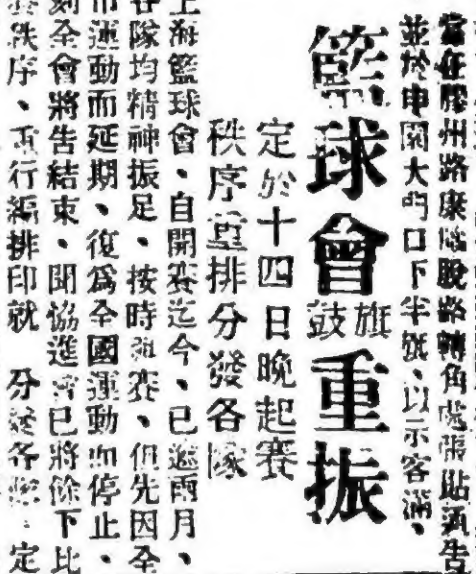 當在膠州路康腦脫路轉角處張貼通告
並於申園大門口下半旗、以示客滿、
籃球會旗鼓重振
定於十四日晚起賽
秩序重排分發各隊
上海籃球會、自開賽迄今、已逾兩月、
各隊均精神振足、按時到賽、但先因全
市運動而延期、復爲全國運動而停止、
刻全會將告結束、聞協進會已將餘下比
賽秩序、重行編排印就 分發各隊 定